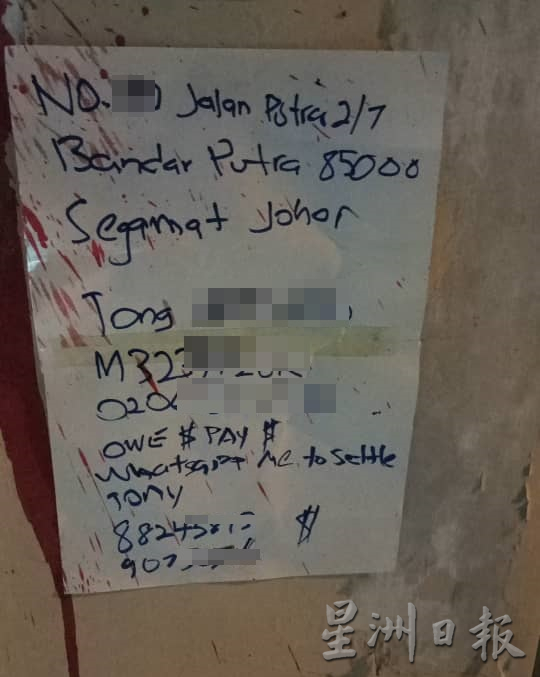 NO. Jalan Putra 2/7
Bandar Putra 85000
Segamat Johor
Tong
M323
020
OWE $ PAY $
Whatsapp me to settle
TONY
8824
$
907
星洲日報